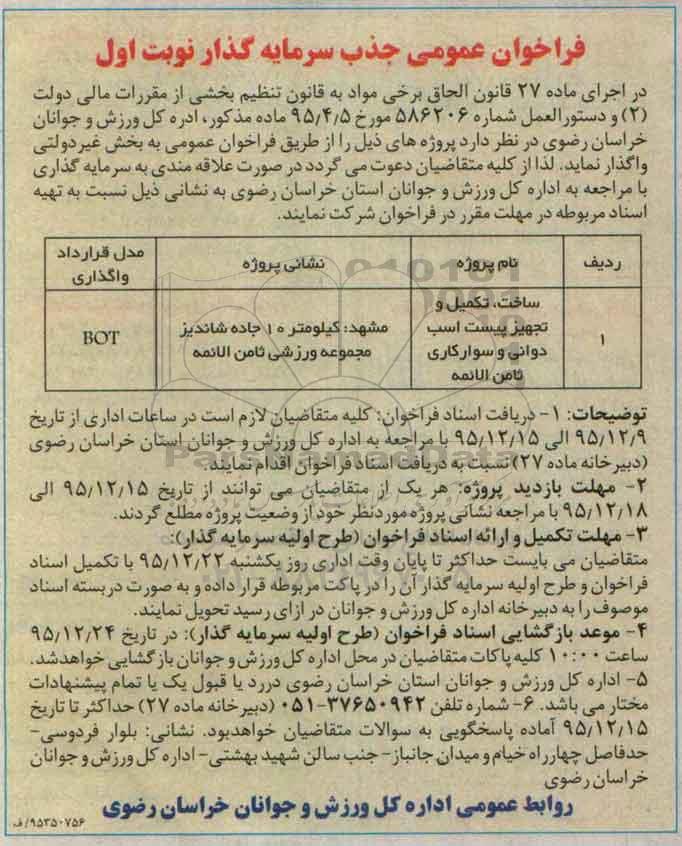 فراخوان عمومی جذب سرمایه گذار نوبت اول
در اجرای ماده ۲۷ قانون الحاق برخی مواد به قانون تنظیم بخشی از مقررات مالی دولت
(۲) و دستورالعمل شماره ۵۸۶۲۰۶ مورخ ۹۵/۴/۵ ماده مذکور، ادره کل ورزش و جوانان
خراسان رضوی در نظر دارد پروژه های ذیل را از طریق فراخوان عمومی به بخش غیردولتی
واگذار نماید. لذا از کلیه متقاضیان دعوت می گردد در صورت علاقه مندی به سرمایه گذاری
با مراجعه به اداره کل ورزش و جوانان استان خراسان رضوی به نشانی ذیل نسبت به تهیه
اسناد مربوطه در مهلت مقرر در فراخوان شرکت نمایند.
ردیف نام پروژه نشانی پروژه مدل قرارداد واگذاری
۱ ساخت، تکمیل و تجهیز پیست اسب دوانی و سوارکاری ثامن الائمه مشهد: کیلومتر ۱۰ جاده شاندیز مجموعه ورزشی ثامن الائمه BOT
توضیحات: ۱- دریافت اسناد فراخوان: کلیه متقاضیان لازم است در ساعات اداری از تاریخ
۹۵/۱۲/۹ الی ۹۵/۱۲/۱۵ با مراجعه به اداره کل ورزش و جوانان استان خراسان رضوی
(دبیرخانه ماده ۲۷) نسبت به دریافت اسناد فراخوان اقدام نمایند.
ParsNamadData
۲- مهلت بازدید پروژه: هر یک از متقاضیان می توانند از تاریخ ۹۵/۱۲/۱۵ الی
۹۵/۱۲/۱۸ با مراجعه نشانی پروژه موردنظر خود از وضعیت پروژه مطلع گردند.
۳- مهلت تکمیل و ارائه اسناد فراخوان (طرح اولیه سرمایه گذار):
متقاضیان می بایست حداکثر تا پایان وقت اداری روز یکشنبه ۹۵/۱۲/۲۲ با تکمیل اسناد
فراخوان و طرح اولیه سرمایه گذار آن را در پاکت مربوطه قرار داده و به صورت دربسته اسناد
موصوف را به دبیرخانه اداره کل ورزش و جوانان در ازای رسید تحویل نمایند.
۴- موعد بازگشایی اسناد فراخوان (طرح اولیه سرمایه گذار): در تاریخ ۹۵/۱۲/۲۴
ساعت ۱۰:۰۰ کلیه پاکات متقاضیان در محل اداره کل ورزش و جوانان بازگشایی خواهدشد.
۵- اداره کل ورزش و جوانان استان خراسان رضوی دررد یا قبول یک یا تمام پیشنهادات
مختار می باشد. ۶- شماره تلفن ۳۷۶۵۰۹۴۲-۰۵۱ (دبیرخانه ماده ۲۷) حداکثر تا تاریخ
۹۵/۱۲/۱۵ آماده پاسخگویی به سوالات متقاضیان خواهدبود. نشانی: بلوار فردوسی-
حدفاصل چهارراه خیام و میدان جانباز- جنب سالن شهید بهشتی- اداره کل ورزش و جوانان
خراسان رضوی
روابط عمومی اداره کل ورزش و جوانان خراسان رضوی
۹۵۳۵۰۷۵۶/ف